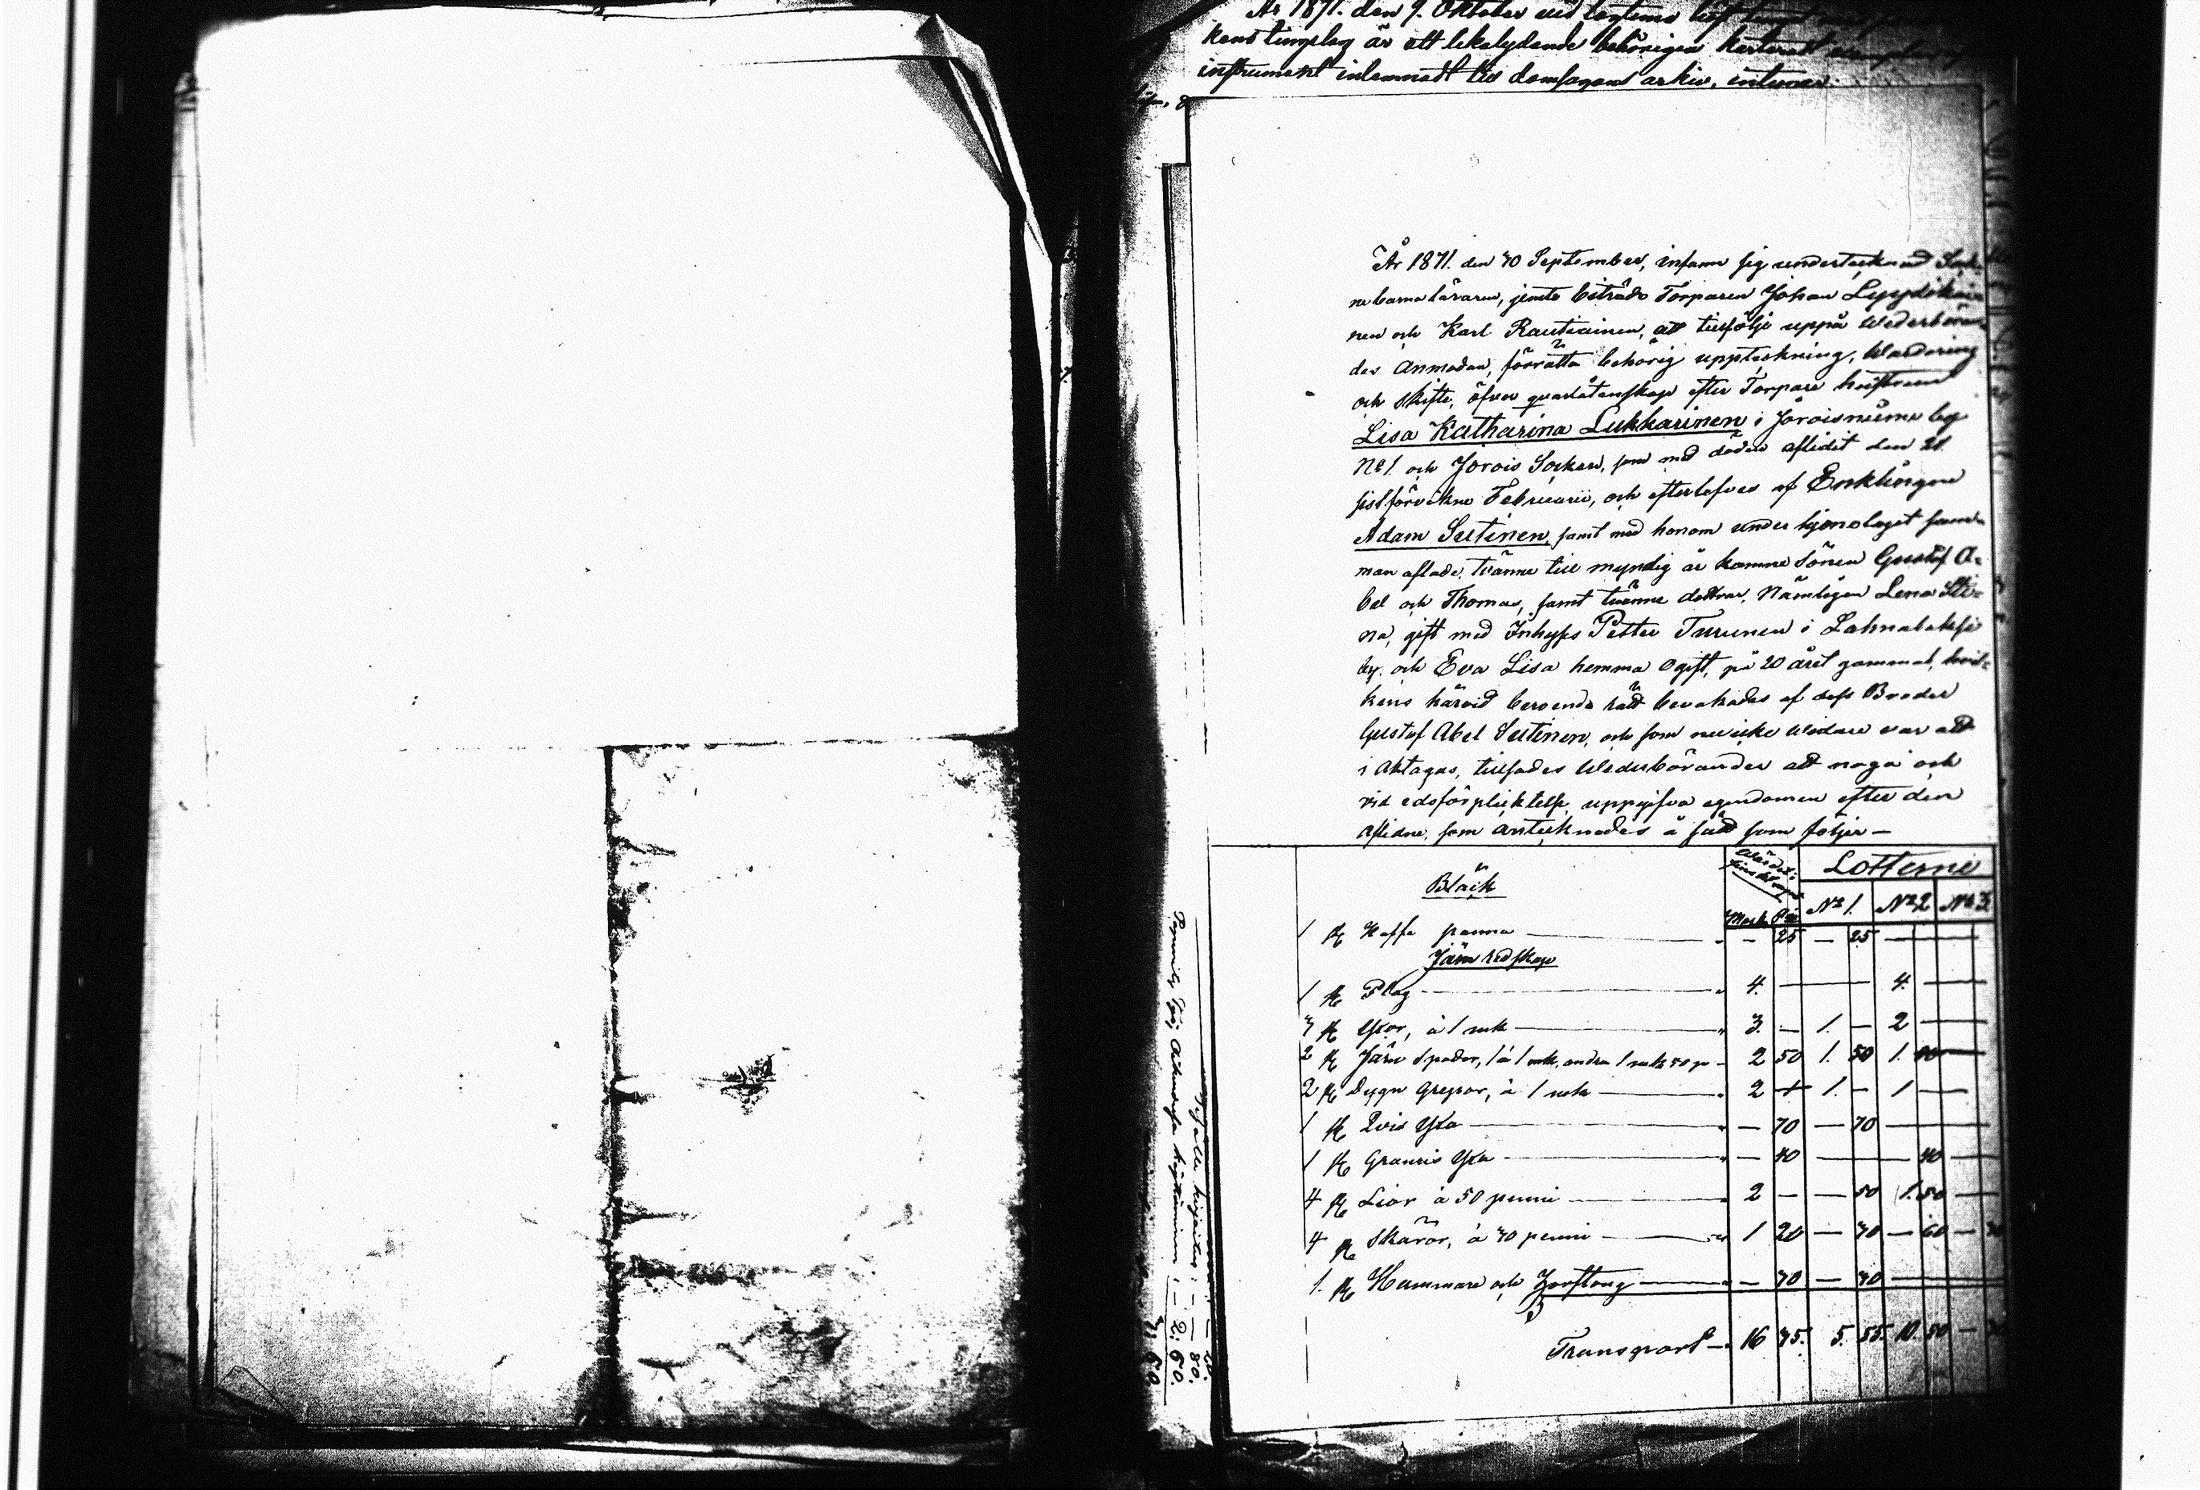 År 1871. den 9. Oktober vid laglima
kens tingslag är ett likalydande behörigen
instrument inlemnadt till domsagans arkiv, intygar.
År 1871. den 30 September, infann sig undertecknad Sock-
nebarnaläraren, jemte biträde Torparen Johan Lyydikäi-
nen och Karl Rautiainen, att tillfölje uppå Wederböran-
des Anmodan, förrätta behörig uppteckning, Wärdering
och Skifte, öfver quarlåtenskap efter Torpare hustrun
Lisa Katharina Lukkarinen i Joroisniemi by
N:o 1. och Jorois Socken, som med döden aflidit den 21.
sistförvikne Februarii, och efterlefves af Enklingen
Adam Sutinen, samt med honom under hjonelaget samm-
man aflade, tvänne till myndig år komne Söner Gustaf A-
bel och Thomas, samt tvänne döttrar, Nämligen Lena Sti-
na, gift med Inhyses Petter Turunen i Lahnalaksi
by, och Eva Lisa hemma ogift, på 20 året gammal, hvil-
kens härvid beroende rätt bevakades af dess Broder
Gustaf Abel Sutinen, och som nu icke vidare var att
i Aktagas, tillsades Wederböranden att noga och
vid edsförpliktelse uppgifva egendomen efter den
Aflidne, som antecknades å sätt som följer —
Lotterne
Bläck
Mark Pi N:o 1. N:o 2 N:o 3
1 st Kaffe panna — 25 — 25 —
Järn redskap
1 st Plog — 4. — 4. —
3 st Yxor, à 1 mk — 3. — 1. — 2 —
2 st Järn Spador, 1 à 1 mk, andra 1 mk 50 p — 2 50 1. 50 1. —
2 st Dyng Grepar, à 1 mk — 2 — 1. — 1 —
1 st Qvis Yxa — 70 — 70 —
1 st Granris Yxa — 40 — 40 —
4 st Liar à 50 penni — 2 — — 50 1. 50 —
4 st Skäror, à 30 penni — 1 20 — 30 — 60 — 30
1. st Hammare och — 30 — 30 —
Transport — 16 35. 5. 55. 10. 50 — 30